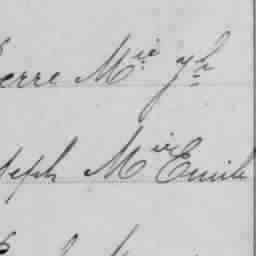 erre M^ie Jh
seph M^ie Emile